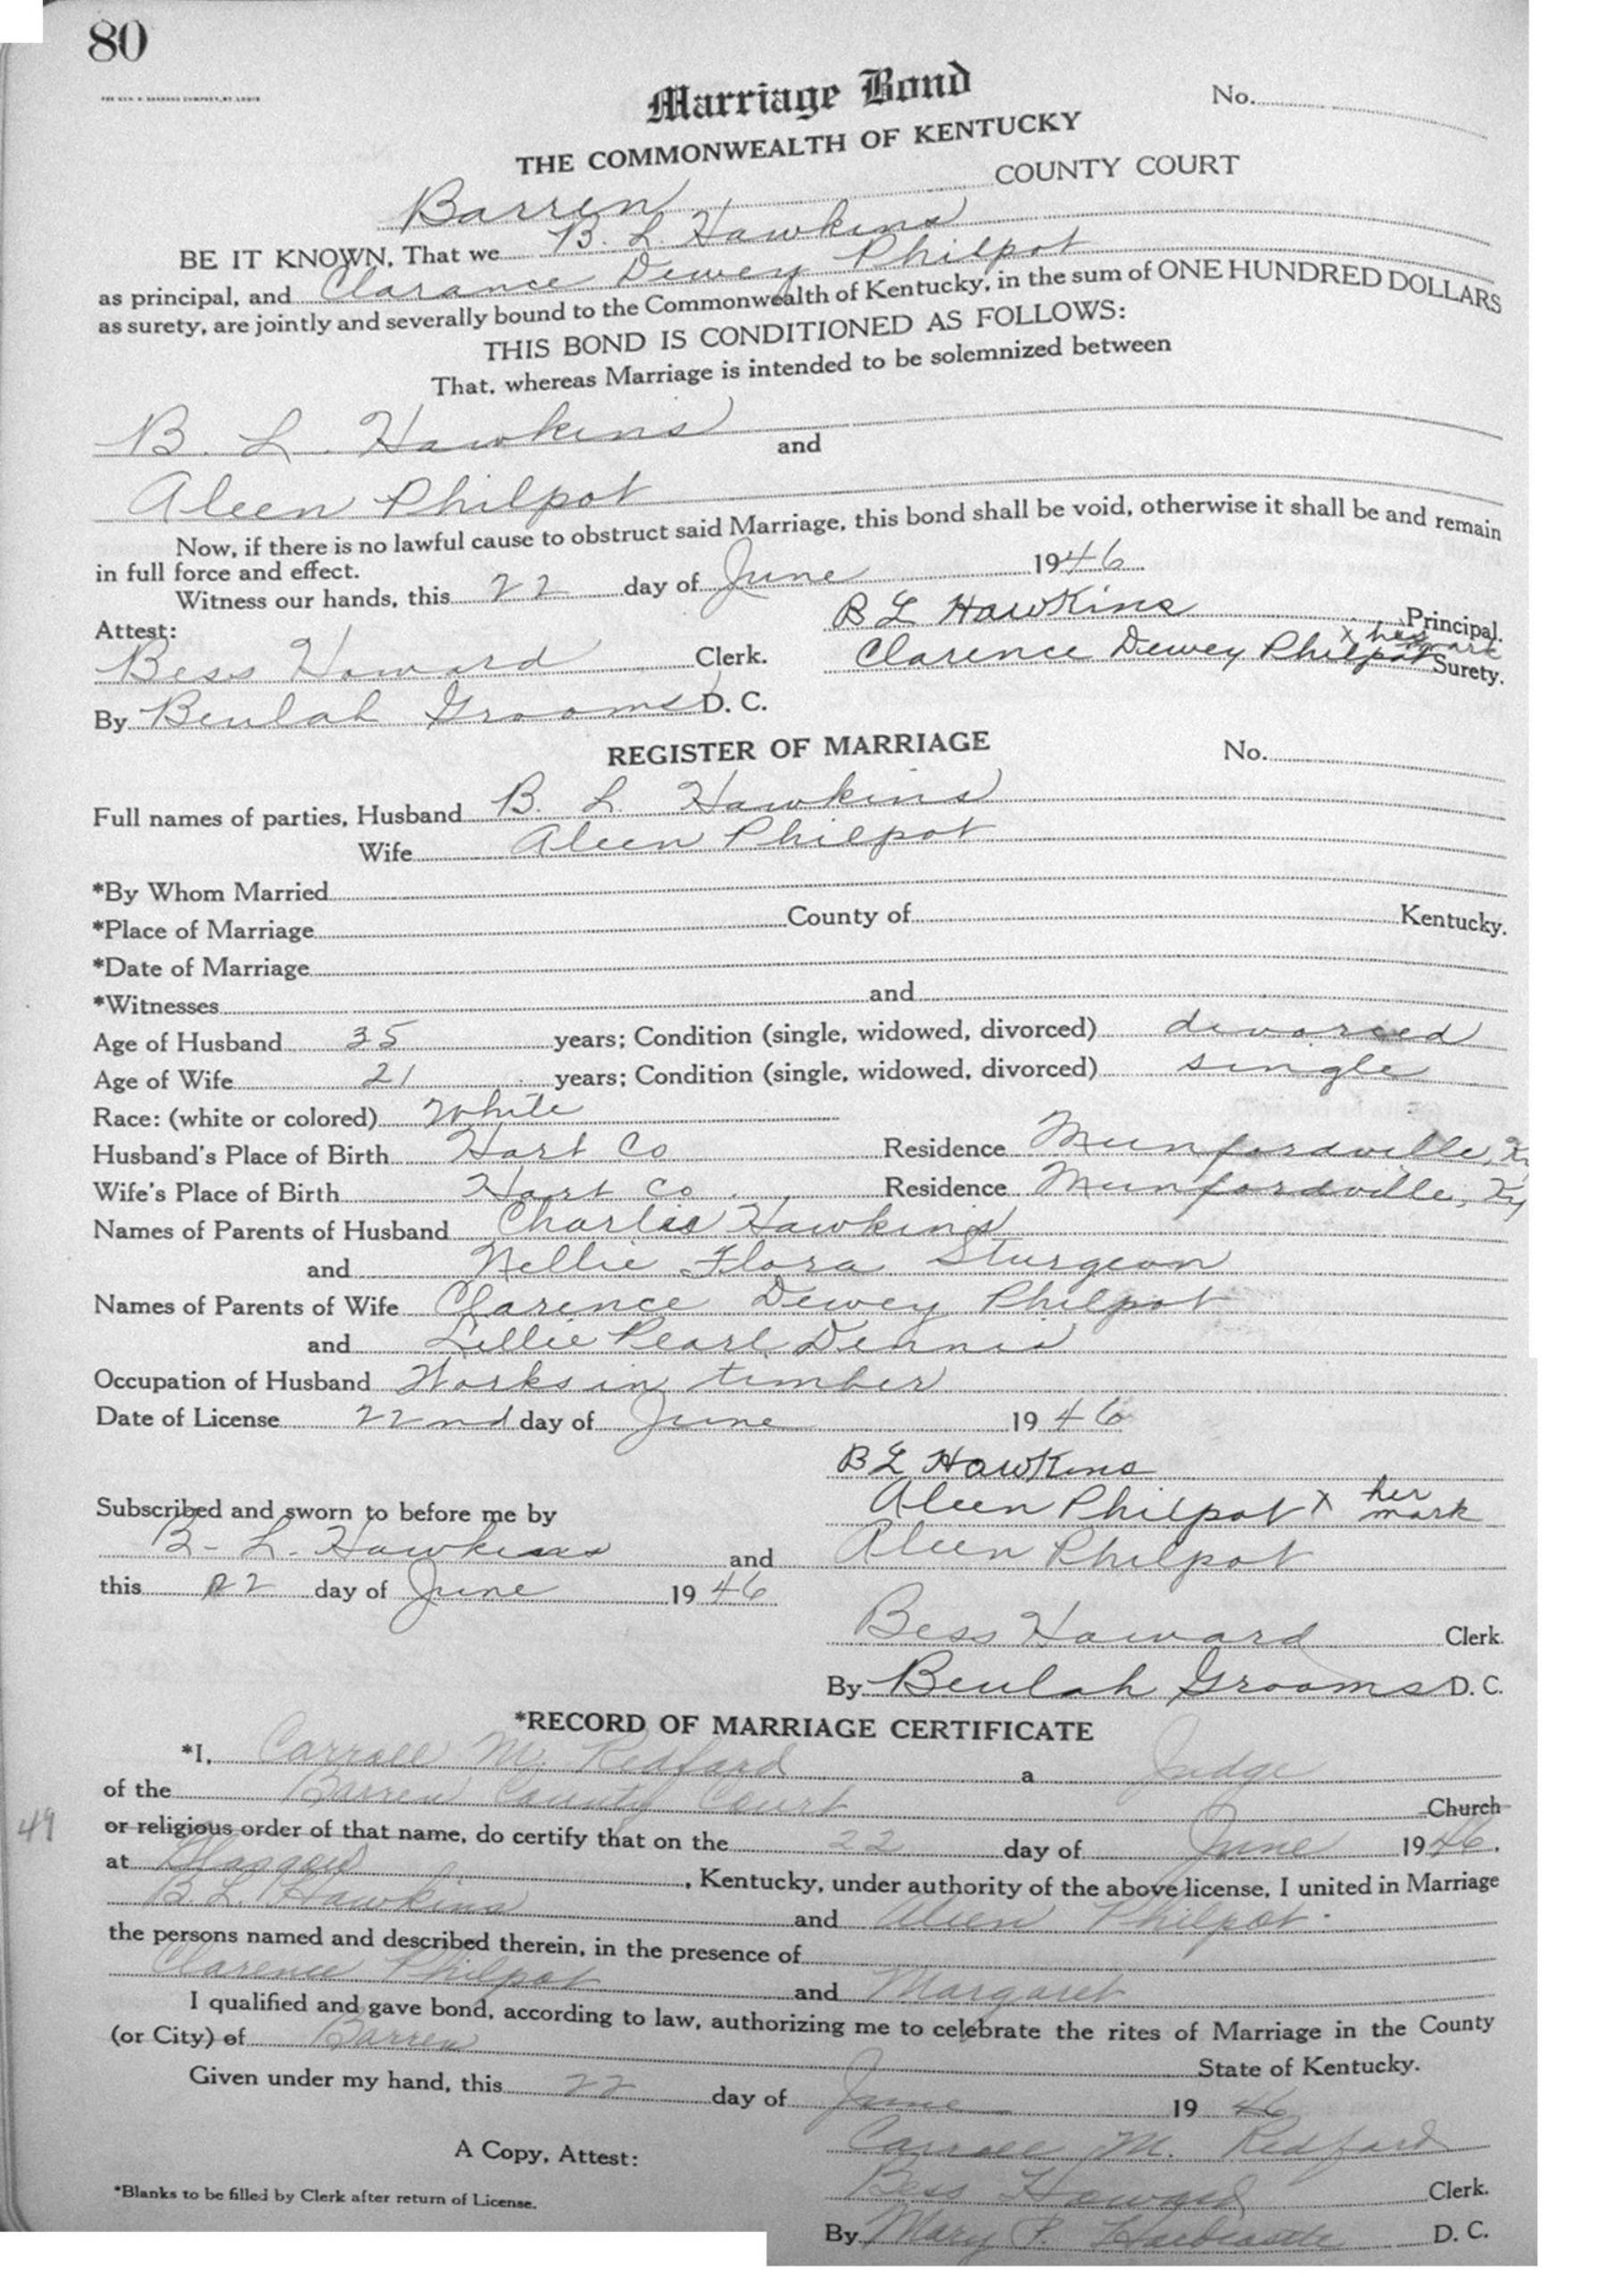 80
Marriage Bond
No.
THE COMMONWEALTH OF KENTUCKY
Barren COUNTY COURT
BE IT KNOWN, That we B. L. Hawkins
as principal, and Clarance Dewey Philpot
as surety, are jointly and severally bound to the Commonwealth of Kentucky, in the sum of ONE HUNDRED DOLLARS
THIS BOND IS CONDITIONED AS FOLLOWS:
That, whereas Marriage is intended to be solemnized between
B. L. Hawkins and
Aleen Philpot
Now, if there is no lawful cause to obstruct said Marriage, this bond shall be void, otherwise it shall be and remain
in full force and effect.
Witness our hands, this 22 day of June 1946
Attest: B L Hawkins Principal.
Bess Howard Clerk. Clarence Dewey Philpot x his mark Surety.
By Beulah Grooms D. C.
REGISTER OF MARRIAGE No.
Full names of parties, Husband B. L. Hawkins
Wife Aleen Philpot
*By Whom Married
*Place of Marriage County of Kentucky.
*Date of Marriage
*Witnesses and
Age of Husband 35 years; Condition (single, widowed, divorced) divorced
Age of Wife 21 years; Condition (single, widowed, divorced) single
Race: (white or colored) White
Husband's Place of Birth Hart Co Residence Munfordville, Ky
Wife's Place of Birth Hart Co. Residence Munfordville, Ky
Names of Parents of Husband Charlie Hawkins
and Nellie Flora Sturgeon
Names of Parents of Wife Clarence Dewey Philpot
and Lillie Pearl Dennis
Occupation of Husband Works in timber
Date of License 22nd day of June 1946
B L Hawkins
Aleen Philpot x her mark
Subscribed and sworn to before me by
B. L. Hawkins and Aleen Philpot
this 22 day of June 1946
Bess Howard Clerk.
By Beulah Grooms D. C.
*RECORD OF MARRIAGE CERTIFICATE
*I, Carroll M. Redford a Judge
of the Barren County Court Church
49
or religious order of that name, do certify that on the 22 day of June 1946.
at Glasgow, Kentucky, under authority of the above license, I united in Marriage
B. L. Hawkins and Aleen Philpot.
the persons named and described therein, in the presence of
Clarence Philpot and Margaret
I qualified and gave bond, according to law, authorizing me to celebrate the rites of Marriage in the County
(or City) of Barren State of Kentucky.
Given under my hand, this 22 day of June 1946
Carroll M. Redford
A Copy, Attest:
Bess Howard Clerk.
*Blanks to be filled by Clerk after return of License.
By Mary P. D. C.